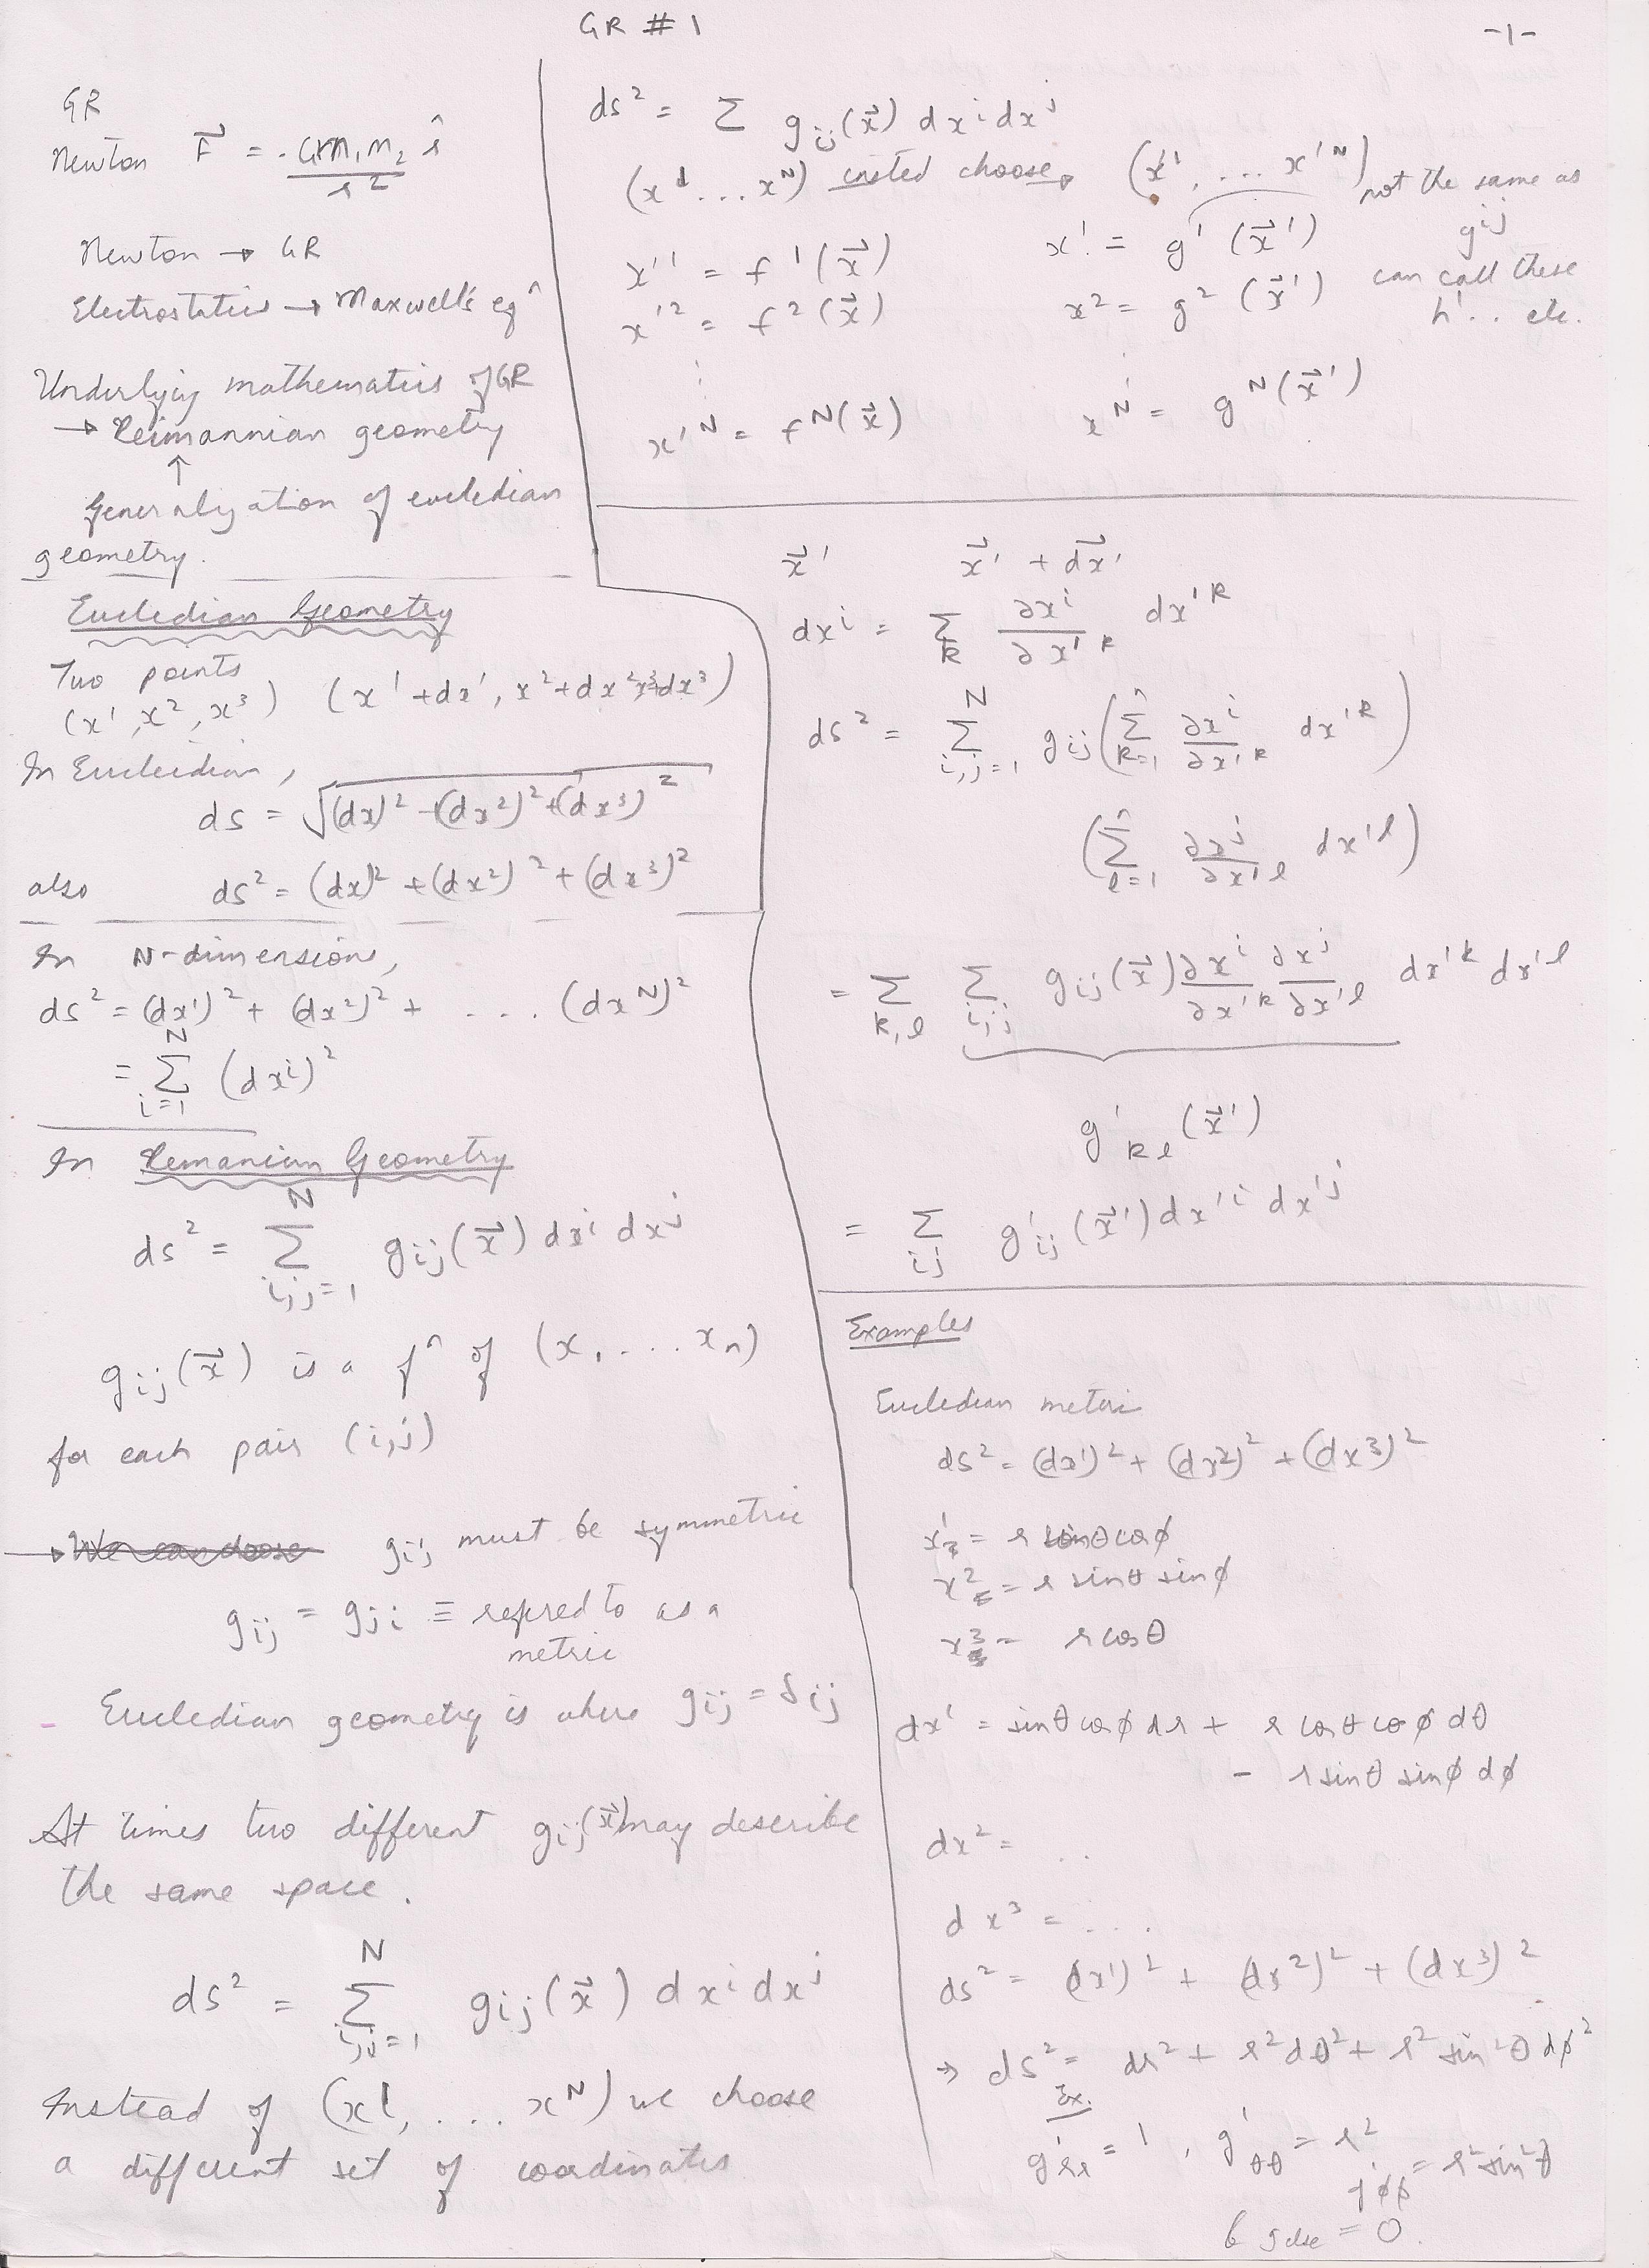 GR # 1
-1-
GR
Newton F⃗ = - Gm₁m₂ r̂ / r²
Newton → GR
Electrostatics → Maxwell's eqⁿ
Underlying mathematics of GR
→ Reimannian geometry
↑
Generalization of eucledian
geometry.
Eucledian Geometry
Two points
(x¹, x², x³) (x¹+dx¹, x²+dx², x³+dx³)
In Eucledian,
ds = √((dx)² + (dx²)² + (dx³)²)
also ds² = (dx)² + (dx²)² + (dx³)²
In N-dimensions,
ds² = (dx¹)² + (dx²)² + .... (dx^N)²
= Σ_{i=1}^{N} (dx^i)²
In Remanian Geometry
ds² = Σ_{i,j=1}^{N} g_ij(x⃗) dx^i dx^j
g_ij(x⃗) is a fⁿ of (x₁ .... x_n)
for each pair (i,j)
→ We can choose g_ij must be symmetric
g_ij = g_ji ≡ refered to as a
metric
- Eucledian geometry is where g_ij = δ_ij
At times two different g_ij(x⃗) may describe
the same space.
ds² = Σ_{i,j=1}^{N} g_ij(x⃗) dx^i dx^j
Instead of (x¹, .... x^N) we choose
a different set of coordinates
ds² = Σ g_ij(x⃗) dx^i dx^j
(x¹ ... x^N) choose → (x'¹, .... x'^N) not the same as
g^ij
x'¹ = f¹(x⃗) x¹ = g¹(x⃗') can call these
x'² = f²(x⃗) x² = g²(x⃗') h¹ .. etc.
⋮ ⋮
x'^N = f^N(x⃗) x^N = g^N(x⃗')
x⃗' x⃗' + dx⃗'
dx^i = Σ_k ∂x^i/∂x'^k dx'^k
ds² = Σ_{i,j=1}^{N} g_ij (Σ_{k=1}^{n} ∂x^i/∂x'^k dx'^k)
(Σ_{l=1}^{n} ∂x^j/∂x'^l dx'^l)
= Σ_{k,l} Σ_{i,j} g_ij(x⃗) ∂x^i/∂x'^k ∂x^j/∂x'^l dx'^k dx'^l
g'_kl(x⃗')
= Σ_{ij} g'_ij(x⃗') dx'^i dx'^j
Examples
Eucledian metric
ds² = (dx¹)² + (dx²)² + (dx³)²
x¹ = r sinθ cosφ
x² = r sinθ sinφ
x³ = r cosθ
dx¹ = sinθ cosφ dr + r cosθ cosφ dθ
- r sinθ sinφ dφ
dx² = ..
dx³ = ....
ds² = (dx¹)² + (dx²)² + (dx³)²
→ ds² = dr² + r²dθ² + r² sin²θ dφ²
Ex.
g'_rr = 1, g'_θθ = r²
g'_φφ = r² sin²θ
= 0.